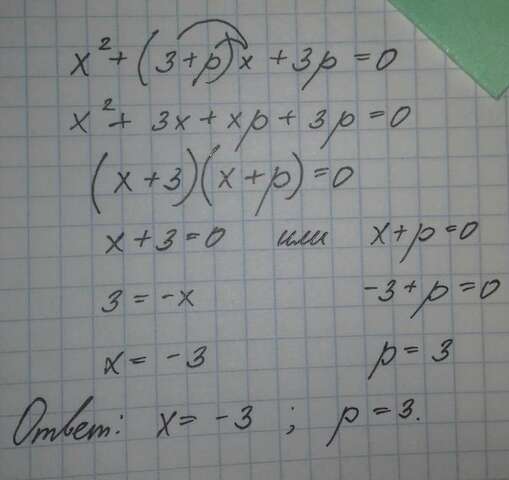 x² + (3+p)x + 3p = 0
x² + 3x + xp + 3p = 0
(x+3)(x+p) = 0
x+3=0 или x+p=0
3 = -x -3+p=0
x = -3 p = 3
Ответ: x = -3 ; p = 3.